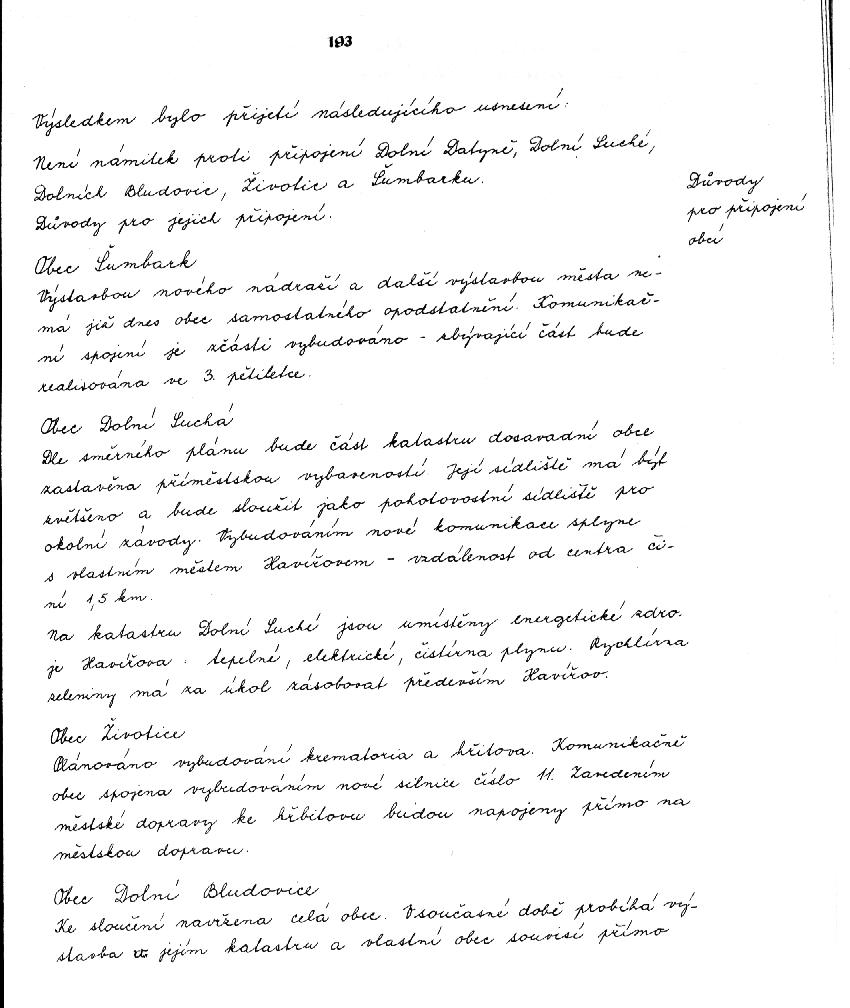 193
Výsledkem bylo přijetí následujícího usnesení:
Není námitek proti připojení Dolní Datyně, Dolní Suché,
Dolních Bludovic, Životic a Šumbarku.
Důvody pro jejich připojení.
Důvody
pro připojení
obcí
Obec Šumbark
Výstavbou nového nádraží a další výstavbou města ne-
má již dnes obec samostatného opodstatnění. Komunikač-
ní spojení je zčásti vybudováno - zbývající část bude
realisována ve 3. pětiletce.
Obec Dolní Suchá
Dle směrného plánu bude část katastru dosavadní obce
zastavěna příměstskou vybaveností. Její sídliště má být
zvětšeno a bude sloužit jako pohotovostní sídliště pro
okolní závody. Vybudováním nové komunikace splyne
s vlastním městem Havířovem - vzdálenost od centra či-
ní 1,5 km.
Na katastru Dolní Suché jsou umístěny energetické zdro-
je Havířova: tepelné, elektrické, čistírna plynu. Rychlírna
zeleniny má za úkol zásobovat především Havířov.
Obec Životice
Plánováno vybudování krematoria a hřitova. Komunikačně
obec spojena vybudováním nové silnice číslo 11. Zavedením
městské dopravy ke hřbitovu budou napojeny přímo na
městskou dopravu.
Obec Dolní Bludovice
Ke sloučení navržena celá obec. V současné době probíhá vý-
stavba v jejím katastru a vlastní obec souvisí přímo